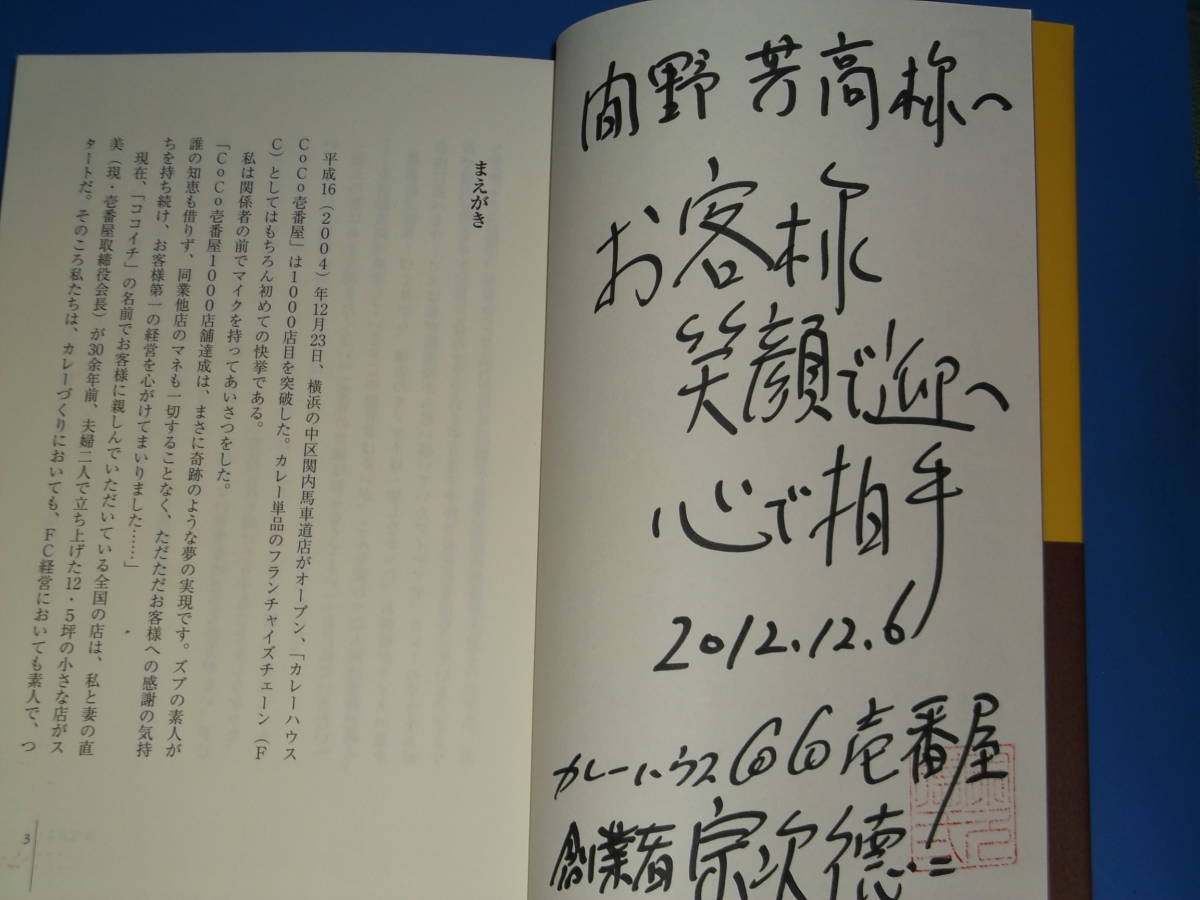 間野芳高様へ
お客様
笑顔で迎へ
心で拍手
2012.12.6
カレーハウスCoCo壱番屋
創業者宗次徳二
まえがき
平成16(2004)年12月23日、横浜の中区関内馬車道店がオープン、「カレーハウス
CoCo壱番屋」は1000店目を突破した。カレー単品のフランチャイズチェーン(F
C)としてはもちろん初めての快挙である。
私は関係者の前でマイクを持ってあいさつをした。
「CoCo壱番屋1000店舗達成は、まさに奇跡のような夢の実現です。ズブの素人が
誰の知恵も借りず、同業他店のマネも一切することなく、ただただお客様への感謝の気持
ちを持ち続け、お客様第一の経営を心がけてまいりました……」
現在、「ココイチ」の名前でお客様に親しんでいただいている全国の店は、私と妻の直
美(現・壱番屋取締役会長)が30余年前、夫婦二人で立ち上げた12・5坪の小さな店がス
タートだ。そのころ私たちは、カレーづくりにおいても、FC経営においても素人で、つ
3